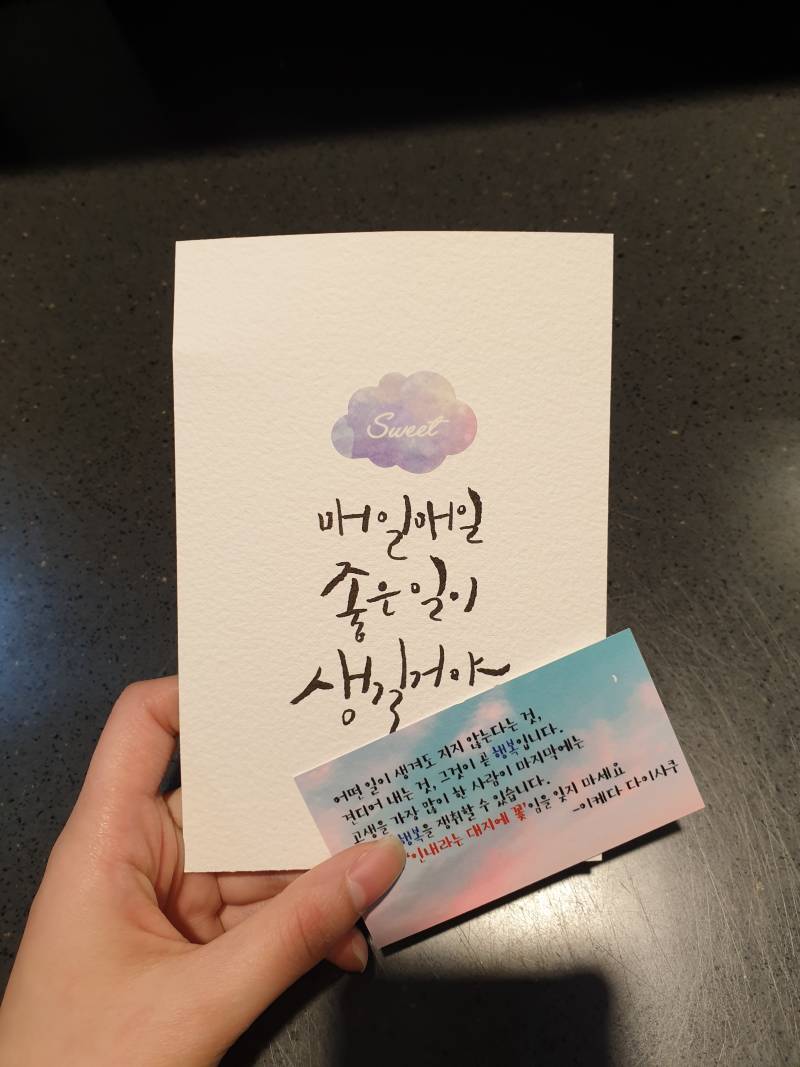 Sweet
매일매일
좋은일이
생길거야
어떤 일이 생겨도 지지 않는다는 것,
견디어 내는 것, 그것이 곧 행복입니다.
고생을 가장 많이 한 사람이 마지막에는
행복을 쟁취할 수 있습니다.
'인내라는 대지에 꽃'임을 잊지 마세요
-이케다 다이사쿠